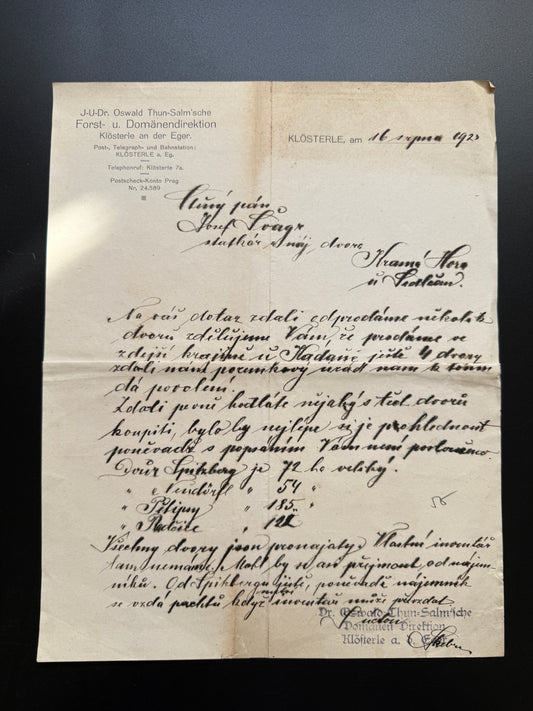 J-U-Dr. Oswald Thun-Salm'sche
Forst- u. Domänendirektion
Klösterle an der Eger.
Post-, Telegraph- und Bahnstation:
KLÖSTERLE a. Eg.
Telephonruf: Klösterle 7a.
Postscheck-Konto Prag
Nr. 24.589
KLÖSTERLE, am 16 srpna 192
Ctěný pán
Josef Švagr
statkář
Hora
u
Na váš dotaz zdali odprodáme několik
dvorů zdělujeme Vám, že prodáme ve
zdejší krajině u Kadaně ještě 4 dvory
zdali nám pozemkový úřad nam k tomu
dá povolení.
Zdali pevně hodláte nějaký s těch dvorů
koupiti, bylo by nejlépe si je prohlednout
poněvadž s popsáním Vám není
Dvůr Spitzberg je 72 ha velký.
" " 54 "
" Pětipsy " 185 "
" Račice " 122
56
Všechny dvory jsou pronajaty. Vlastní inventář
tam nemáme. Mohl by se asi přijmout od nájem-
níků. Od Spitzbergu jistě, poněvadž nájemník
se vzdá pachtu když inventář může předat
Dr. Oswald Thun-Salm'sche
Domänen-Direktion
Klösterle a. d. Eger